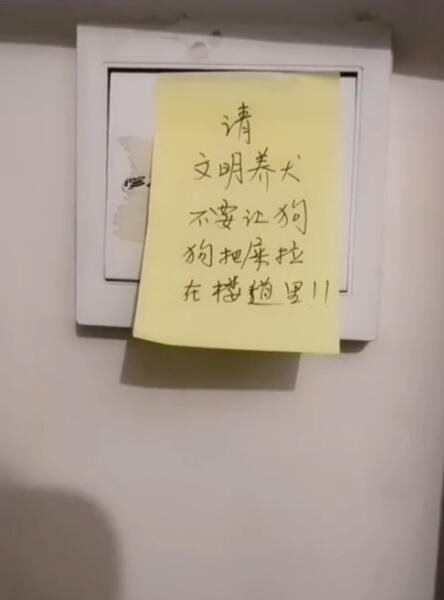 请
文明养犬
不要让狗
狗把屎拉
在楼道里!!